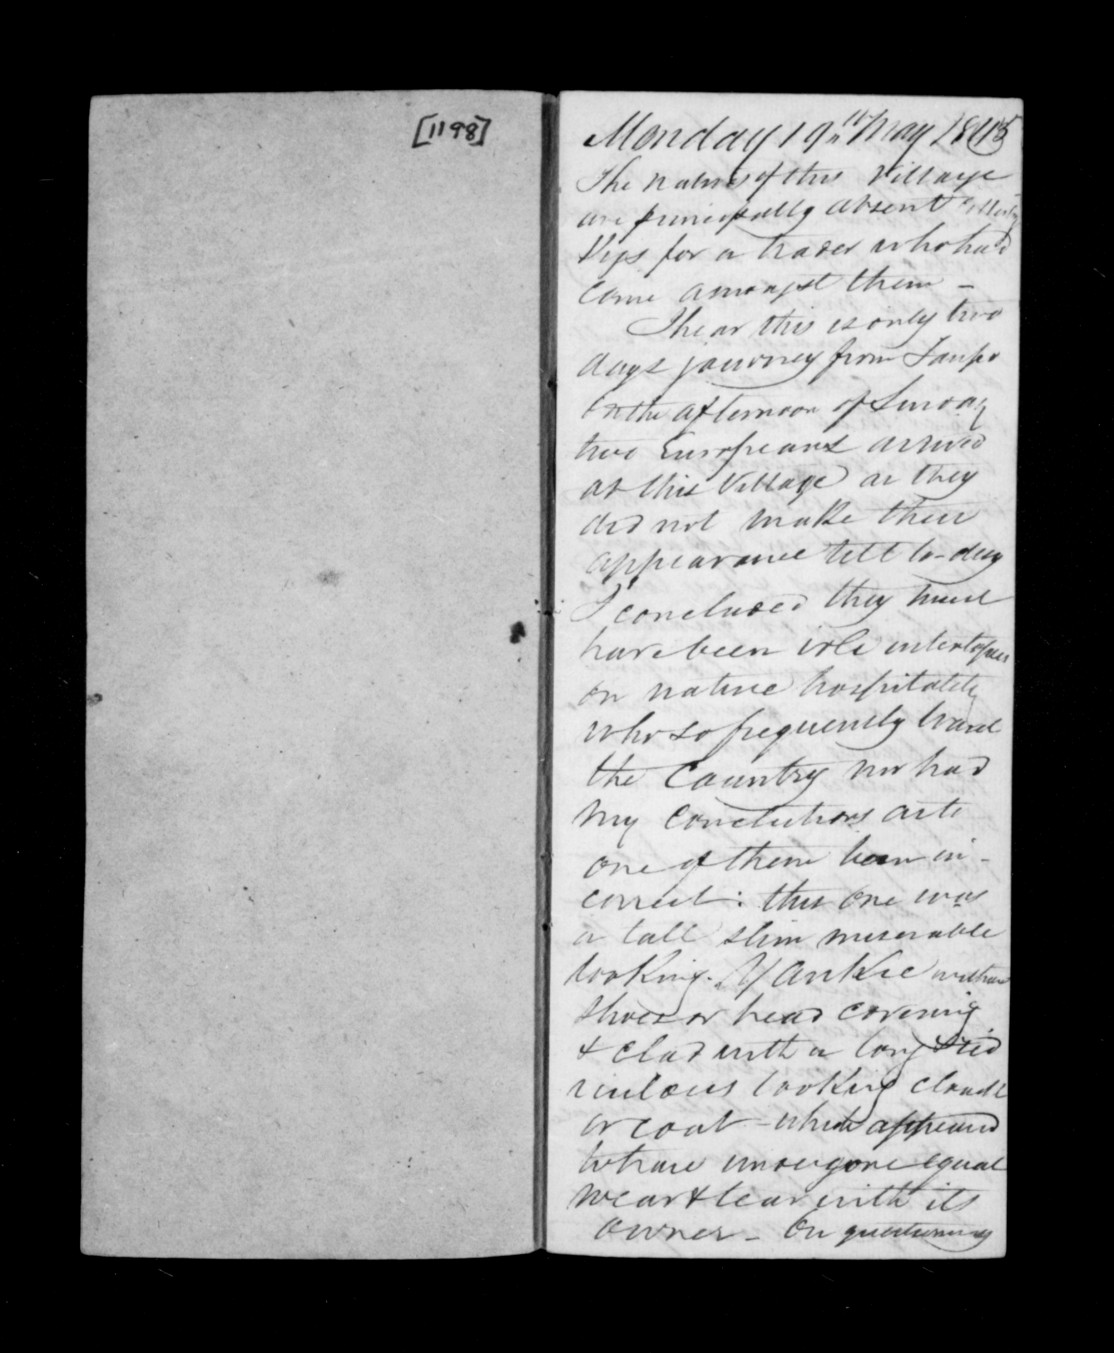 [1198]
Monday 19th May 1845
The natives of this Village
are principally absent
Pigs for a trader who had
come amongst them -
I hear this is only two
days journey from Taupo
On the afternoon of Sunday
two Europeans arrived
at this Village as they
did not make their
appearance till to-day
I concluded they must
have been idle interlopers
on native hospitality
who so frequently travel
the Country nor had
my conclusions as to
one of them been in-
correct: this one was
a tall slim miserable
looking Yankee without
shoes or head covering
& clad with a long & rid
iculous looking cloak
or coat - which appeared
to have undergone equal
wear & tear with its
owner - On questioning